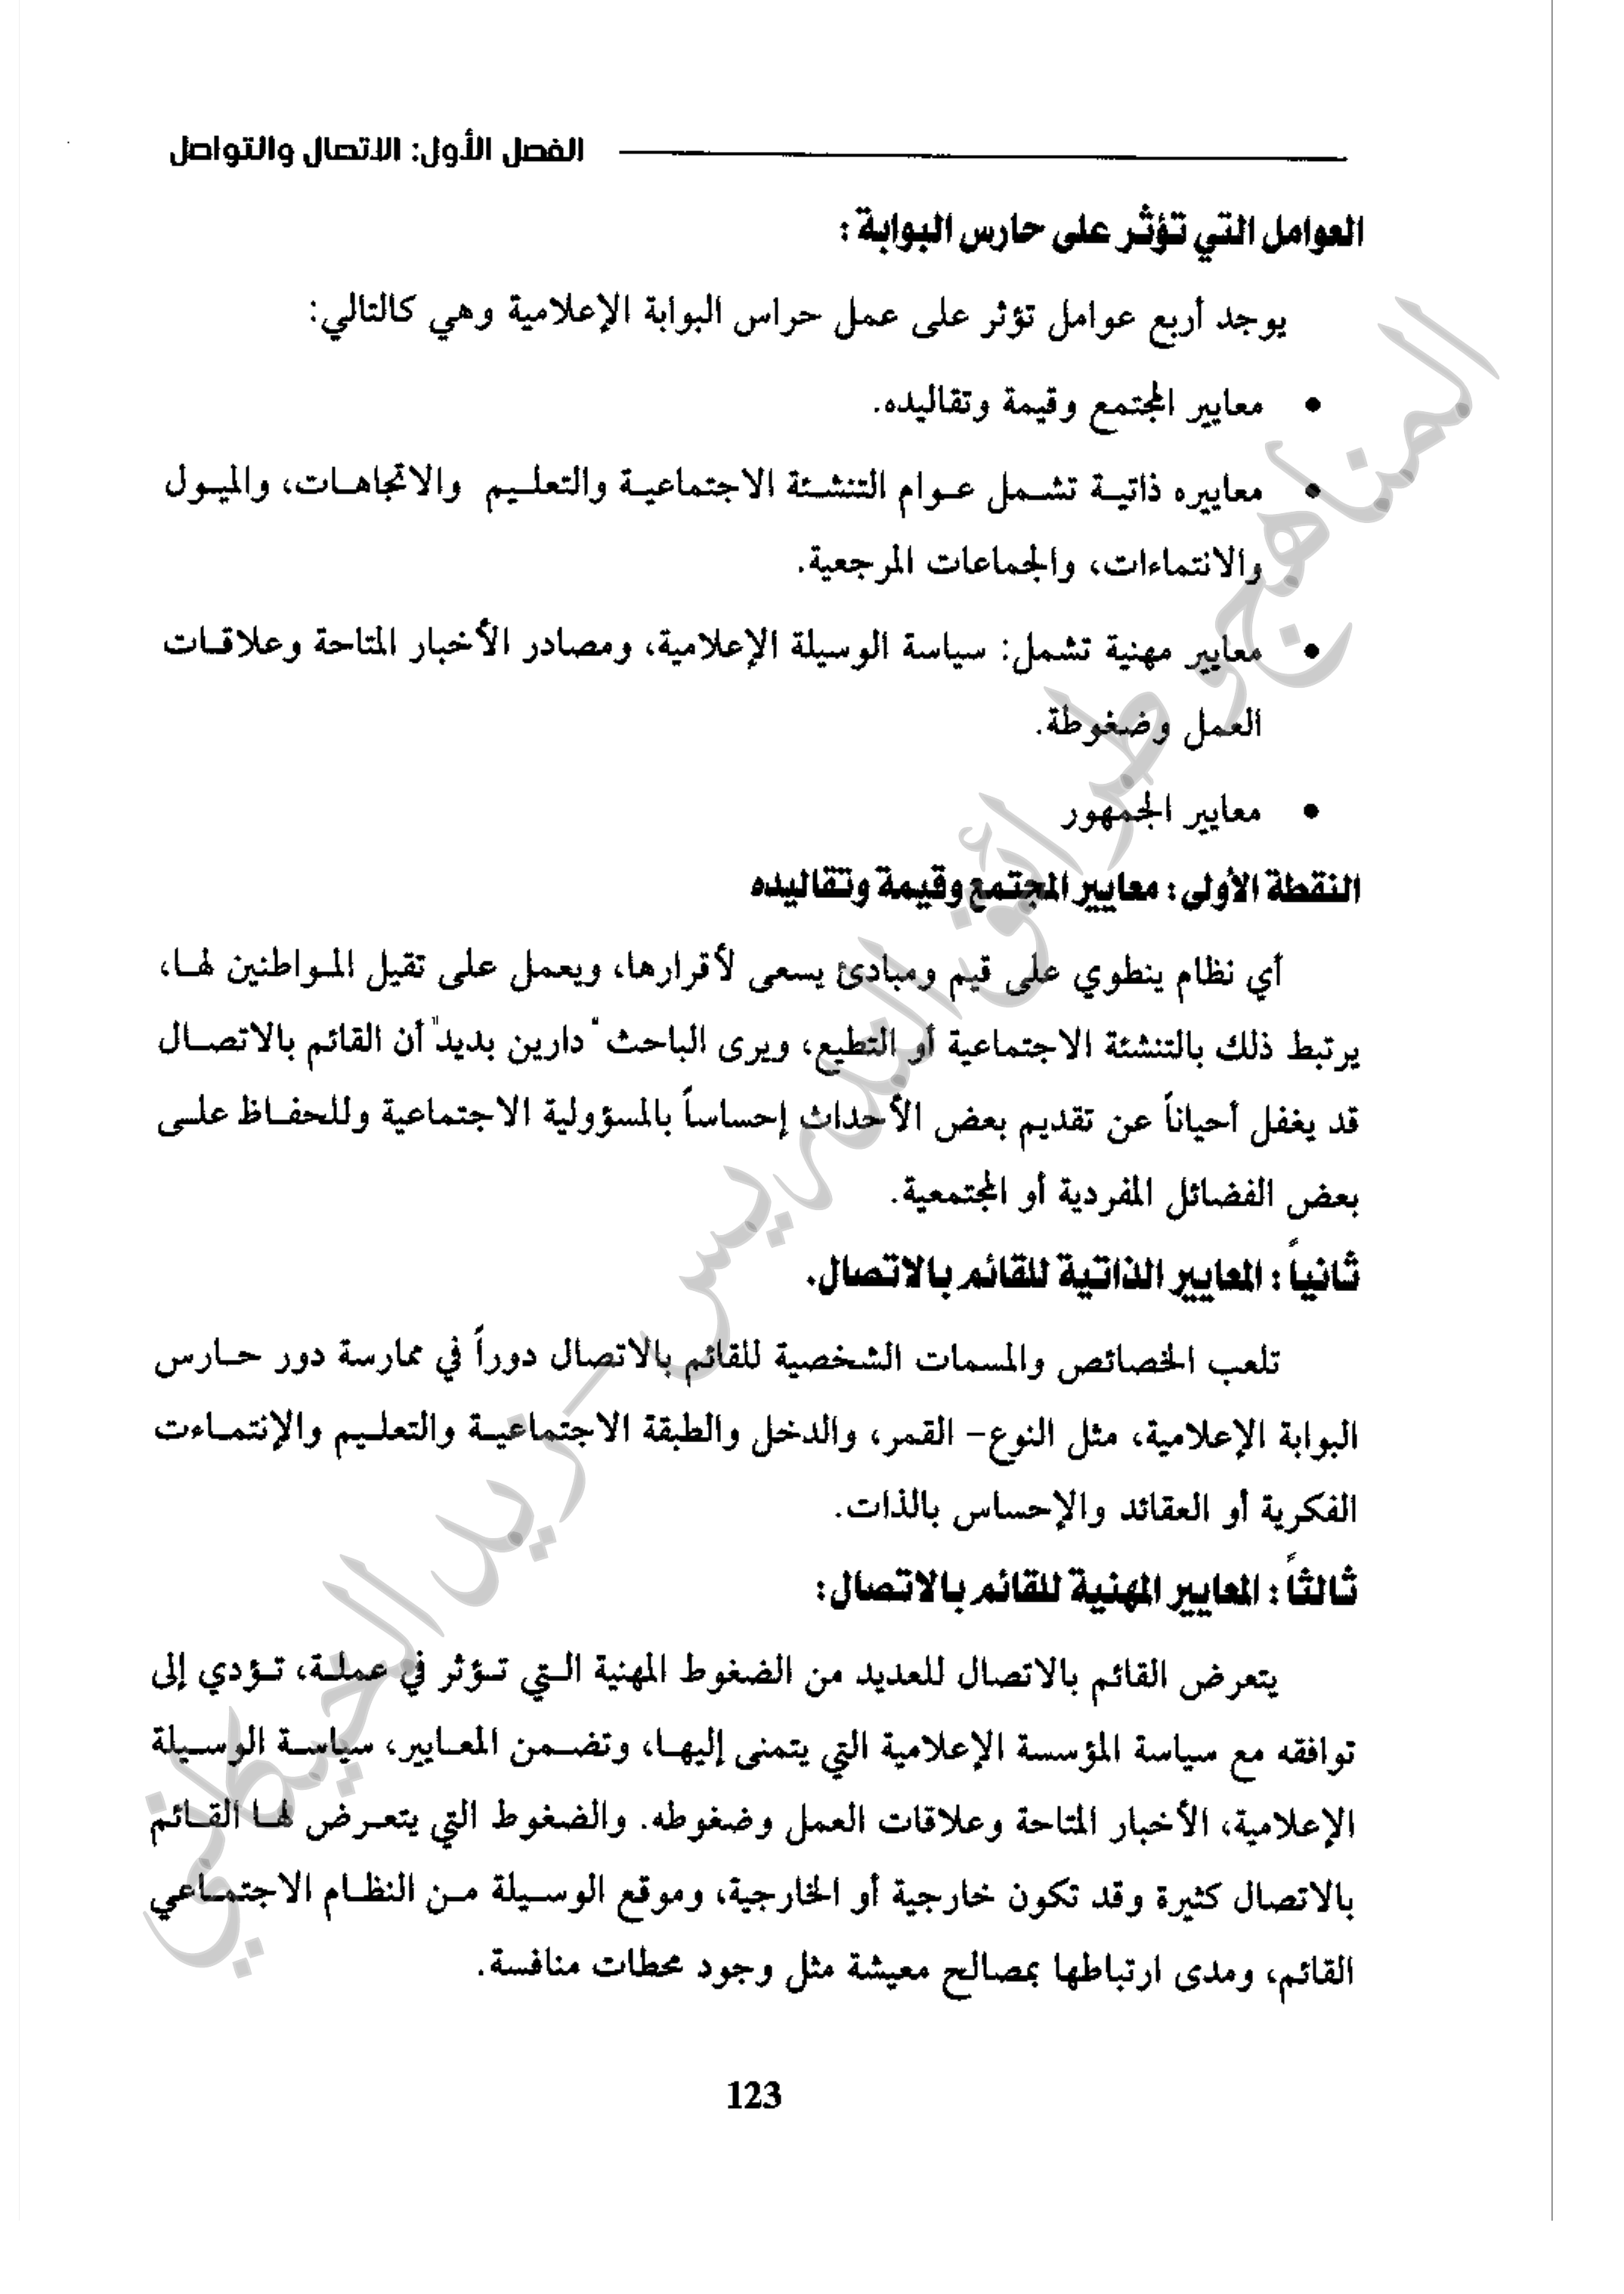 الفصل الأول: الاتصال والتواصل
العوامل التي تؤثر على حارس البوابة :
يوجد أربع عوامل تؤثر على عمل حراس البوابة الإعلامية وهي كالتالي:
• معايير المجتمع وقيمة وتقاليده.
• معاييره ذاتية تشمل عوام التنشئة الاجتماعية والتعليم والاتجاهات، والميول
والانتماءات، والجماعات المرجعية.
• معايير مهنية تشمل: سياسة الوسيلة الإعلامية، ومصادر الأخبار المتاحة وعلاقات
العمل وضغوطة.
• معايير الجمهور
النقطة الأولى : معايير المجتمع وقيمة وتقاليده
أي نظام ينطوي على قيم ومبادئ يسعى لأقرارها، ويعمل على تقيل المواطنين لها،
يرتبط ذلك بالتنشئة الاجتماعية أو التطيع، ويرى الباحث "دارين بديد" أن القائم بالاتصال
قد يغفل أحياناً عن تقديم بعض الأحداث إحساساً بالمسؤولية الاجتماعية وللحفاظ على
بعض الفضائل المفردية أو المجتمعية.
ثانياً : المعايير الذاتية للقائم بالاتصال.
تلعب الخصائص والمسمات الشخصية للقائم بالاتصال دوراً في ممارسة دور حارس
البوابة الإعلامية، مثل النوع- القمر، والدخل والطبقة الاجتماعية والتعليم والإنتماءت
الفكرية أو العقائد والإحساس بالذات.
ثالثاً : المعايير المهنية للقائم بالاتصال:
يتعرض القائم بالاتصال للعديد من الضغوط المهنية التي تؤثر في عملة، تؤدي إلى
توافقه مع سياسة المؤسسة الإعلامية التي يتمنى إليها، وتضمن المعايير، سياسة الوسيلة
الإعلامية، الأخبار المتاحة وعلاقات العمل وضغوطه. والضغوط التي يتعرض لها القائم
بالاتصال كثيرة وقد تكون خارجية أو الخارجية، وموقع الوسيلة من النظام الاجتماعي
القائم، ومدى ارتباطها بمصالح معيشة مثل وجود محطات منافسة.
123
المناهج وطرائق التدريس - زيد الخيكاني